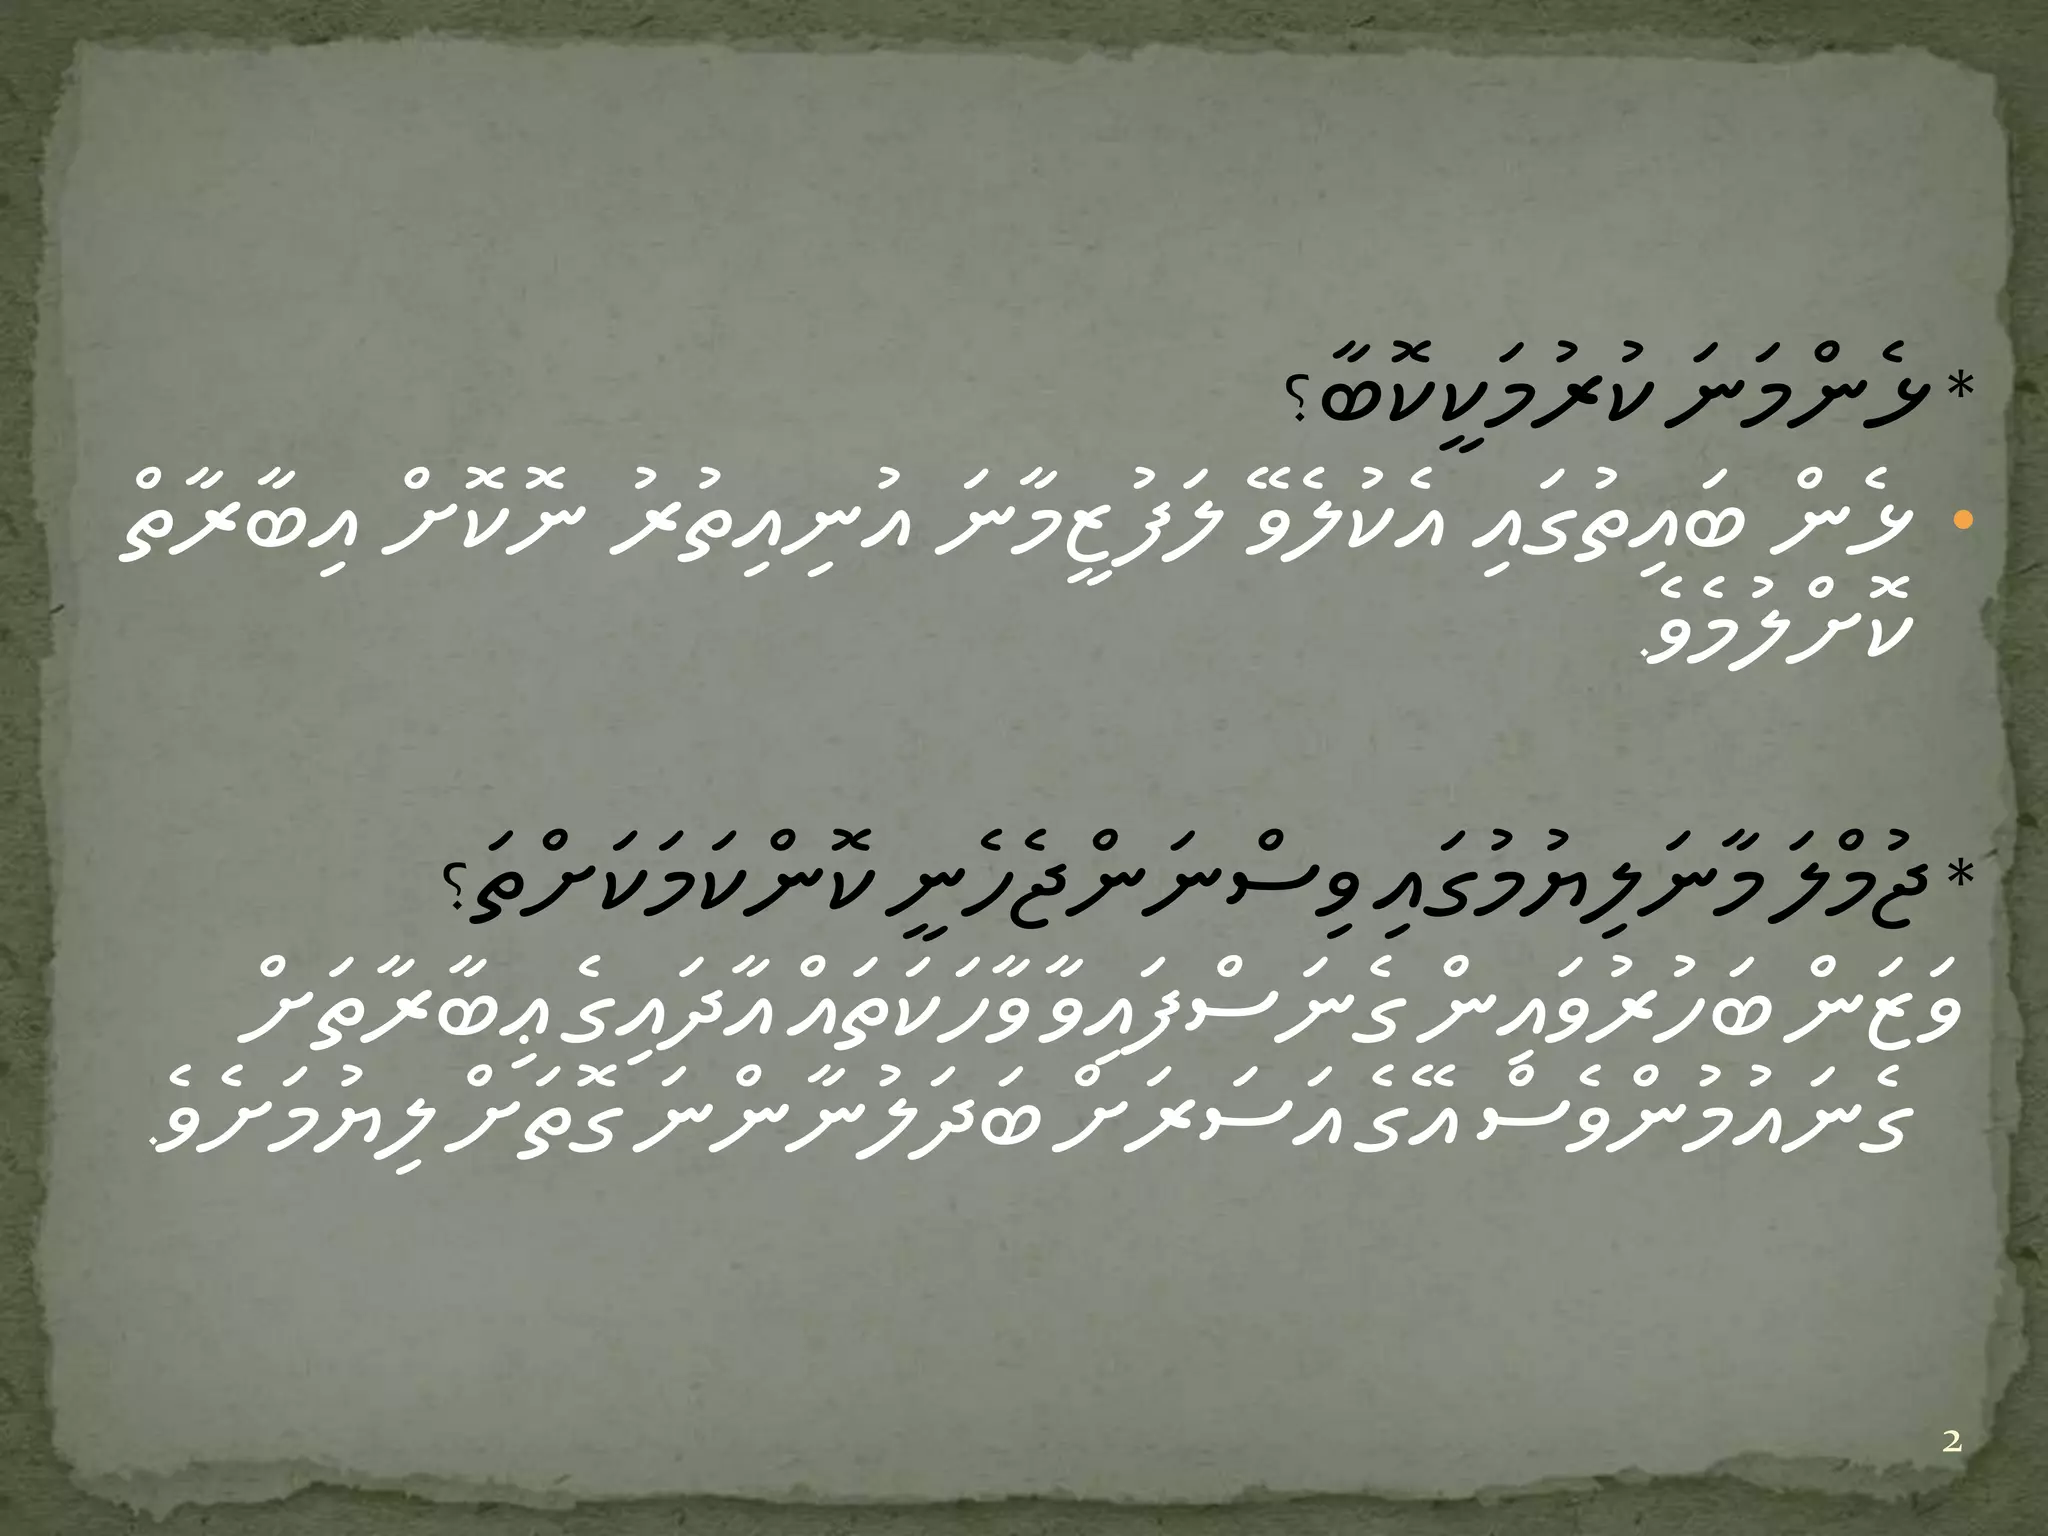 * ޅެންމަނަ ކުރުމަކީކޮބާ؟
• ޅެން ބައިތުގައި އެކުލެވޭ ލަފުޒީމާނަ އުނިއިތުރު ނޮކޮށް އިބާރާތް
ކޮށްލުމެވެ.
* ޖުމްލަ މާނަލިޔުމުގައި ވިސްނަންޖެހެނީ ކޮންކަމަކަށްތަ؟
ވަޒަން ބަހުރުވައިން ގެނަސްފައިވާ ވާހަކަތައް އާދައިގެ ޢިބާރާތަށް
ގެނައުމުންވެސް އޭގެ އަސަރަށް ބަދަލުނާންނަ ގޮތަށް ލިޔުމަށެވެ.
2